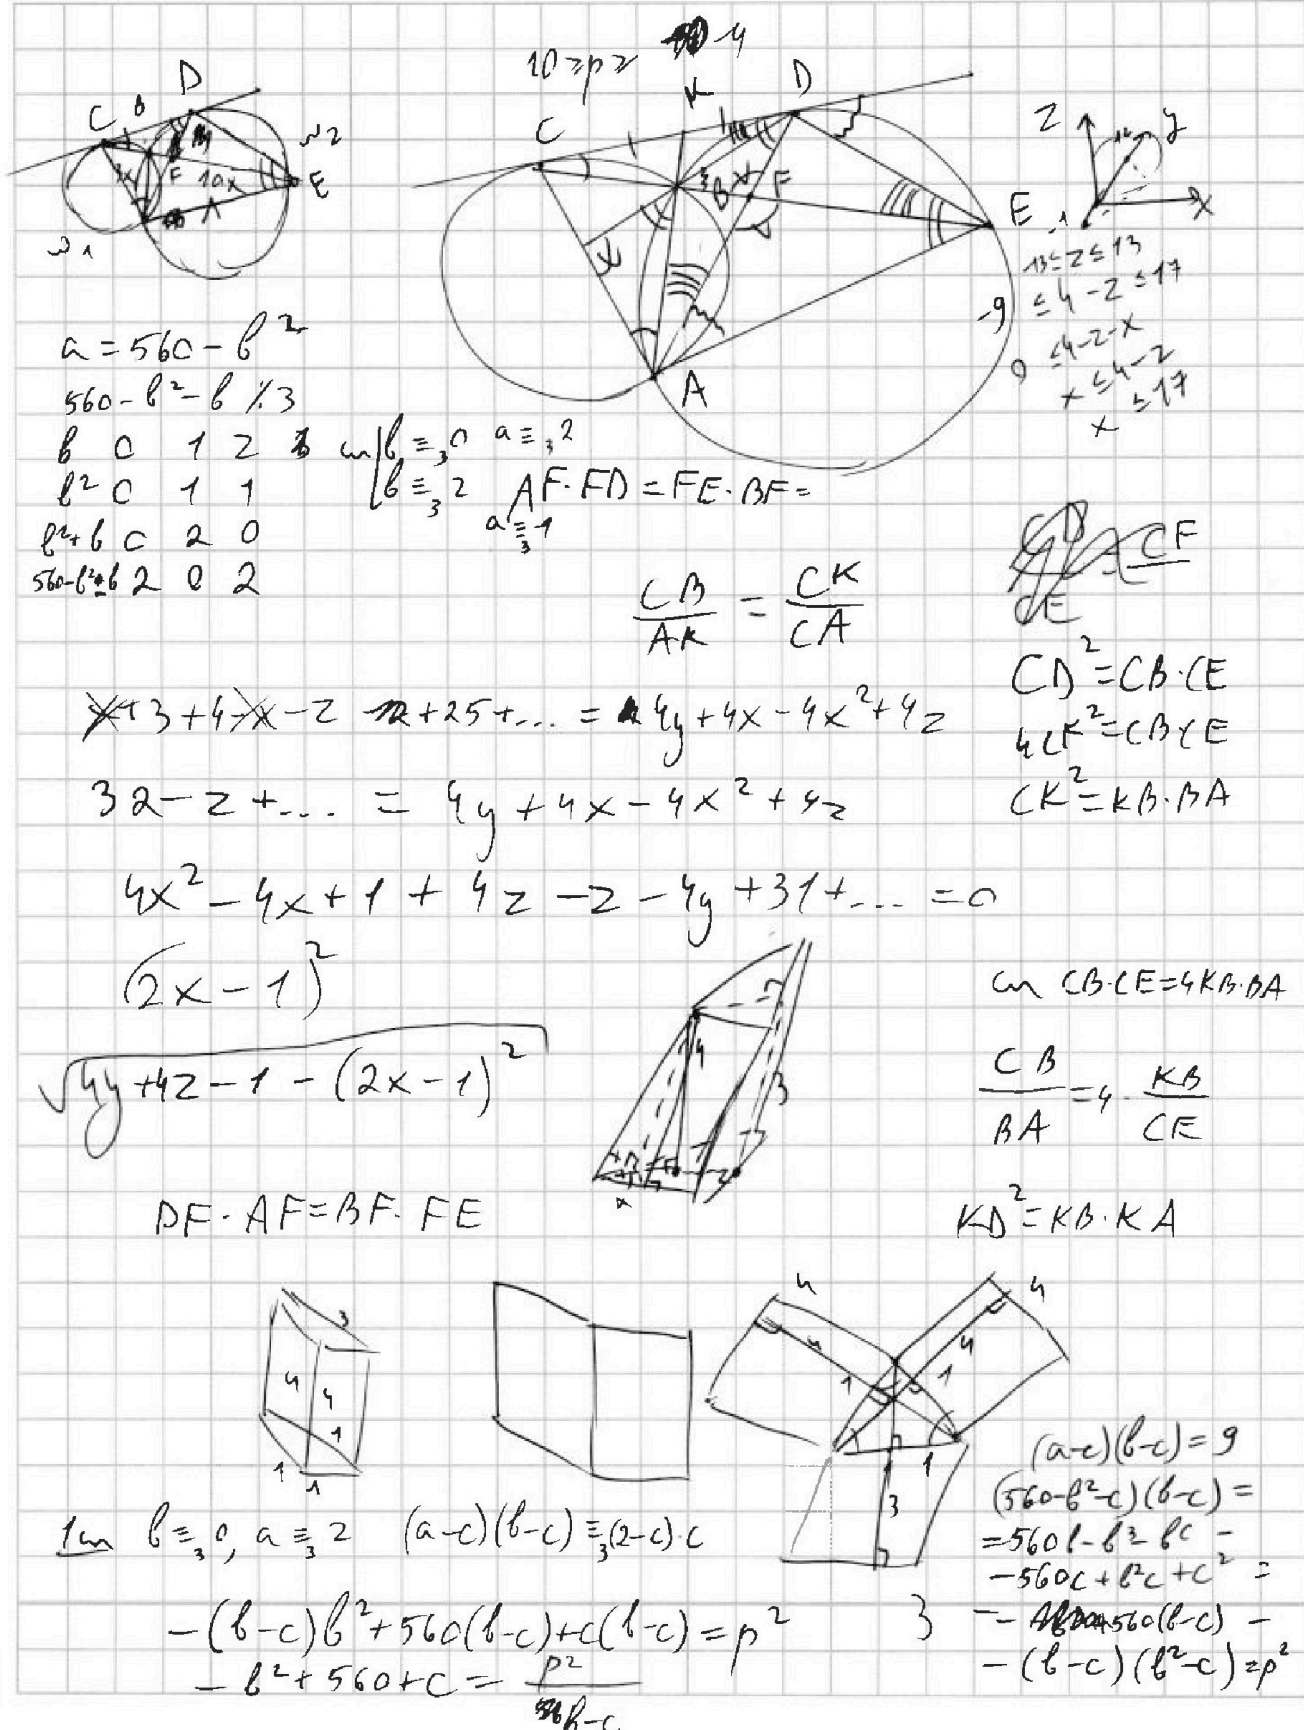 10 ≥ p ≥ -4
C B D F E A
ω1
ω2
10x
C K D B F E A
x
Z y X
-13 ≤ z ≤ 13
-9 ≤ 4 - z ≤ 17
0 ≤ 4 - z - x
x ≤ 4 - z
x ≤ 17
a = 560 - b²
560 - b² - b ⋮̸ 3
b 0 1 2
b² 0 1 1
b²+b 0 2 0
560-b²-b 2 0 2
b ≡₃ 0 a ≡₃ 2
b ≡₃ 2
a ≡₃ 1
AF·FD = FE·BF =
CF
CE
CB/AK = CK/CA
CD² = CB·CE
4CK² = CB·CE
CK² = KB·BA
x+3+4-x-z +25+... = 4y+4x-4x²+4z
32-z+... = 4y+4x-4x²+4z
4x²-4x+1+4z-z-4y+31+... = 0
(2x-1)²
√4y+4z-1-(2x-1)²
CB·CE=4KB·BA
CB/BA = 4·KB/CE
DF·AF=BF·FE
KD²=KB·KA
4 3
3 4 4 1 1 1
4 4 4 1 1 1 3
(a-c)(b-c)=9
(560-b²-c)(b-c)=
=560b-b³-bc-
-560c+b²c+c²=
560(b-c)-
-(b-c)(b²-c)=p²
b ≡₃ 0, a ≡₃ 2 (a-c)(b-c) ≡₃ (2-c)·c
-(b-c)b²+560(b-c)+c(b-c)=p²
3
-b²+560+c = p²/b-c